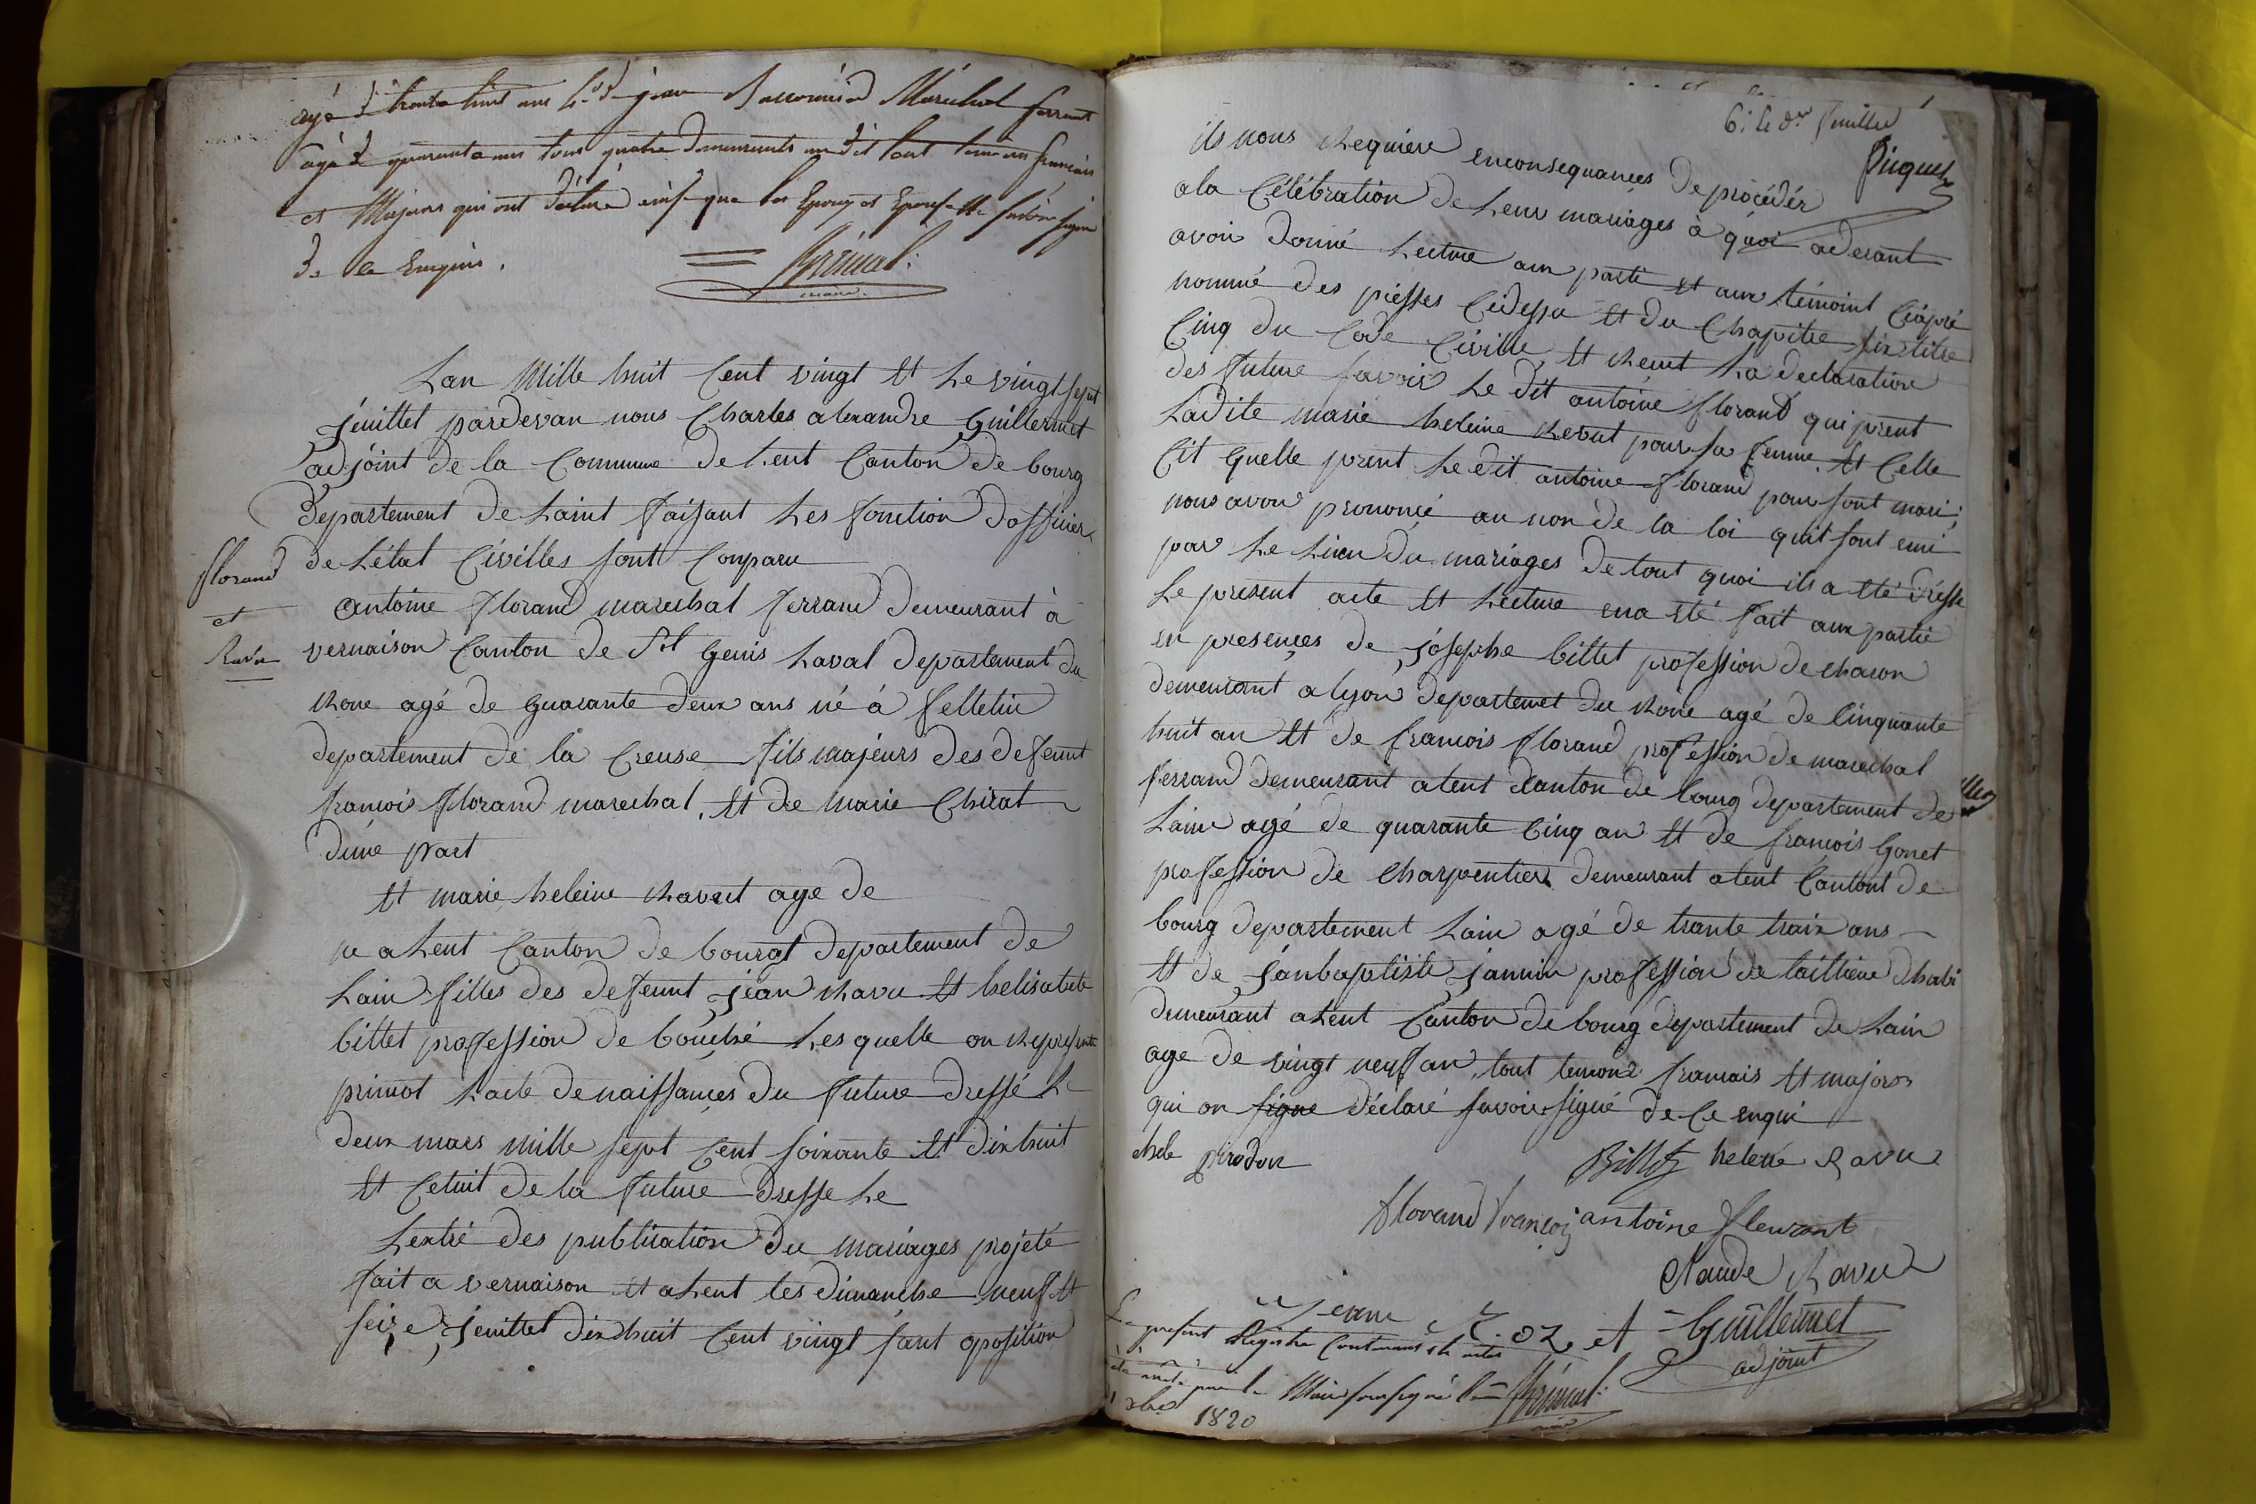 agé de trente huit ans 4° de jean Marechal ferrant
agé de quarante ans tous quatre demeurants audit Lent temoins francais
et Majeurs qui ont déclaré ainsi que les Epoux et Epouse ne savoir signer
de ce Enquis.
maire
Lan Mille huit Cent vingt Et Le vingt sept
Jeuillet pardevan nous Charles alexandre Guillermet
adjoint de la Commune de Lent Canton de bourg
departement de Laint faisant Les fonction doffiier
de Létat Civilles sont Conparu
florand
et
Ravu
antoine florand marechal ferrand demeurant à
vernaison Canton de St Genis Laval departement du
Rone agé de quarante deux ans né á felletin
departement de la Creuse fils majeurs des defeunt
francois florand marechal, Et de Marie Chirat
dune part
Et marie heleine Ravut age de
ne a Lent Canton de bourgt departement de
Lain filles des defeunt jean Ravu Et helisabete
billet profession de bouché Les quelle on Represente
primot Lacte de naissances du future dressé Le
deux mars Mille sept Cent soixante Et dix huit
Et Celuit de la future dresse Le
Lextré des publication du mariages projeté
fait a vernaison Et a Lent les dimanche neuf Et
seize Jeuillet dix huit Cent vingt sant oposition
6: et der feuillet
Piquet
ils nous Requiere enconsequances de procédér
a la Célébration de Leur mariages à quoi aderant
avoir donné Lecture aux parti et aux témoint Ciápré
nommé des piesses Cidessu Et du Chapitre six titre
Cinq du Code Civille, Et Reeut La declaration
des future savoir Le dit antoine florand qui prent
Ladite marie heleine Revut pour sa femme, Et Celle
Cit quelle prent Le dit antoine florand pour sont mari;
nous avons prononcé au non de la loi quit sont uni
par Le Lien du mariages de tout quoi ils a Eté drésse
Le present acte Et Lecture en a Eté fait aux partie
en presences de josephe billet profession de charon
demeurant a lyon departemet du Rone agé de Cinquante
huit an Et de francois florand profession de marechal
ferrand demeurant a lent Canton de bourg departement de
Lain agé de quarante Cinq an Et de francois Gonet
profession de Charpentier demeurant a lent Cantont de
bourg departement Lain agé de trante traix ans
Et de Janbaptiste jannin profession de taillieur dhabi
demeurant a Lent Canton de bourg departement de Lain
age de vingt neuf an, tout temoins francais Et majors
qui on signe déclaré savoir signé de Ce enqui
Billet helene Ravu
florand françoi antoine fleurant
Claude Ravu
Guillermet
adjoint
Le présent Registre Contenant six actes
été arrêté par le Maire soussigné
1820